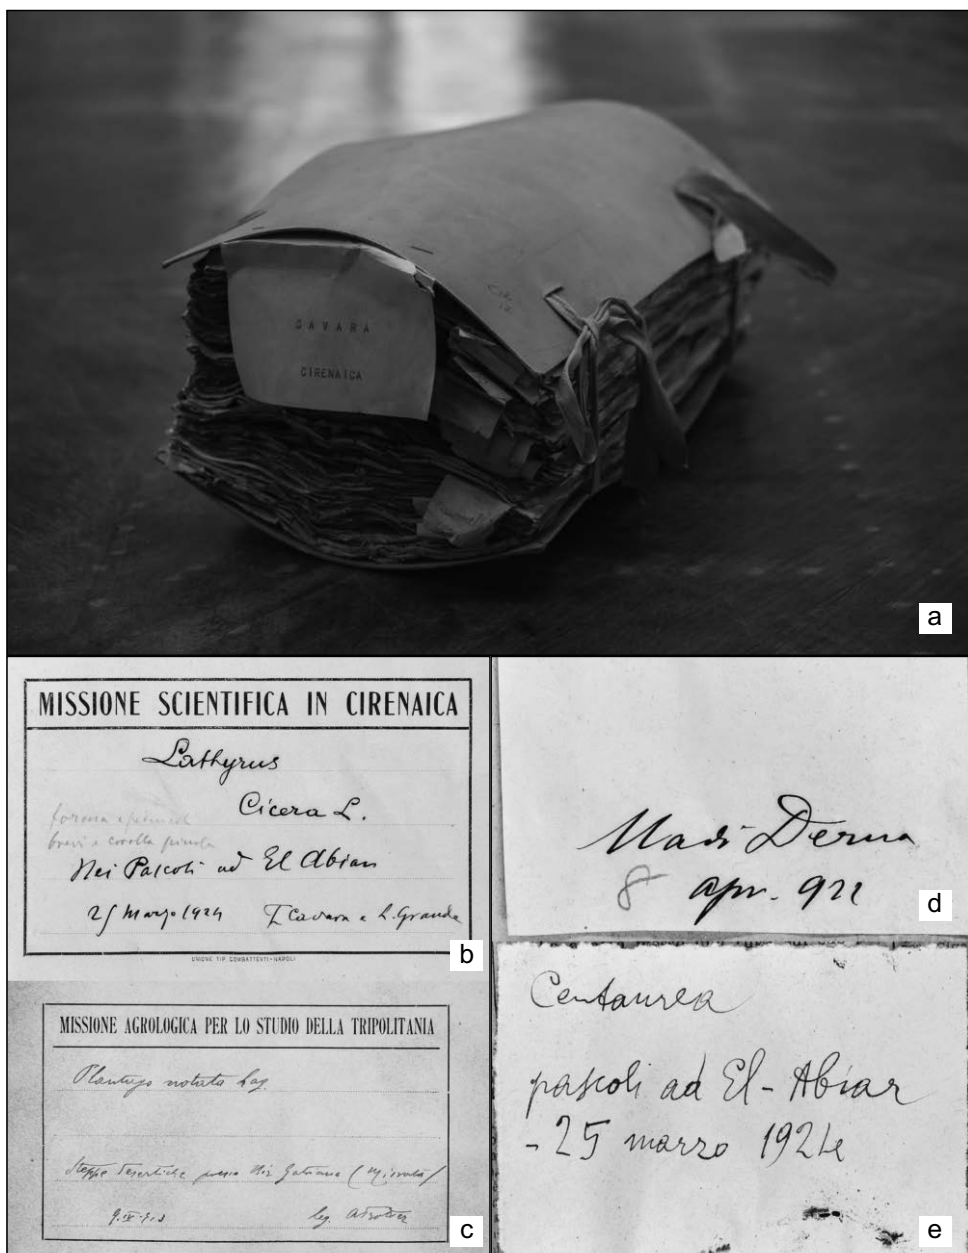 CAVARA
CIRENAICA
a
MISSIONE SCIENTIFICA IN CIRENAICA
Lathyrus
Cicera L.
forma
brevi e corolla
Nei Pascoli ad El Abiar
25 Marzo 1924 F. Cavara e L. Grande
UNIONE TIP. COMBATTENTI-NAPOLI
b
MISSIONE AGROLOGICA PER LO STUDIO DELLA TRIPOLITANIA
Plantago notata Lag.
Steppe desertiche presso Bir
leg.
c
Uadi Derna
8 apr. 922
d
Centaurea
pascoli ad El-Abiar
-25 marzo 1924
e